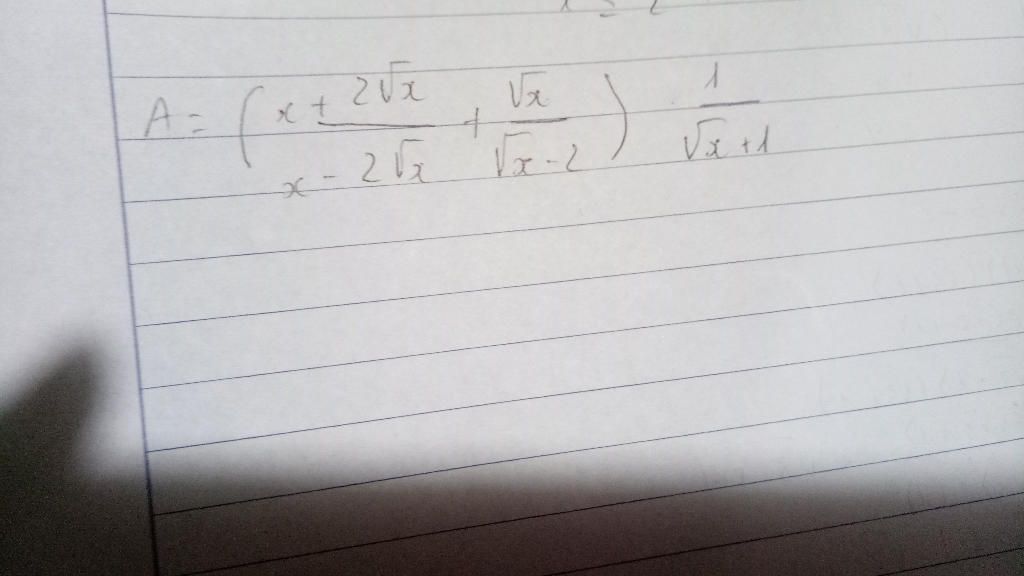 A = ( (x + 2√x)/(x - 2√x) + √x/(√x - 2) ) · 1/(√x + 1)